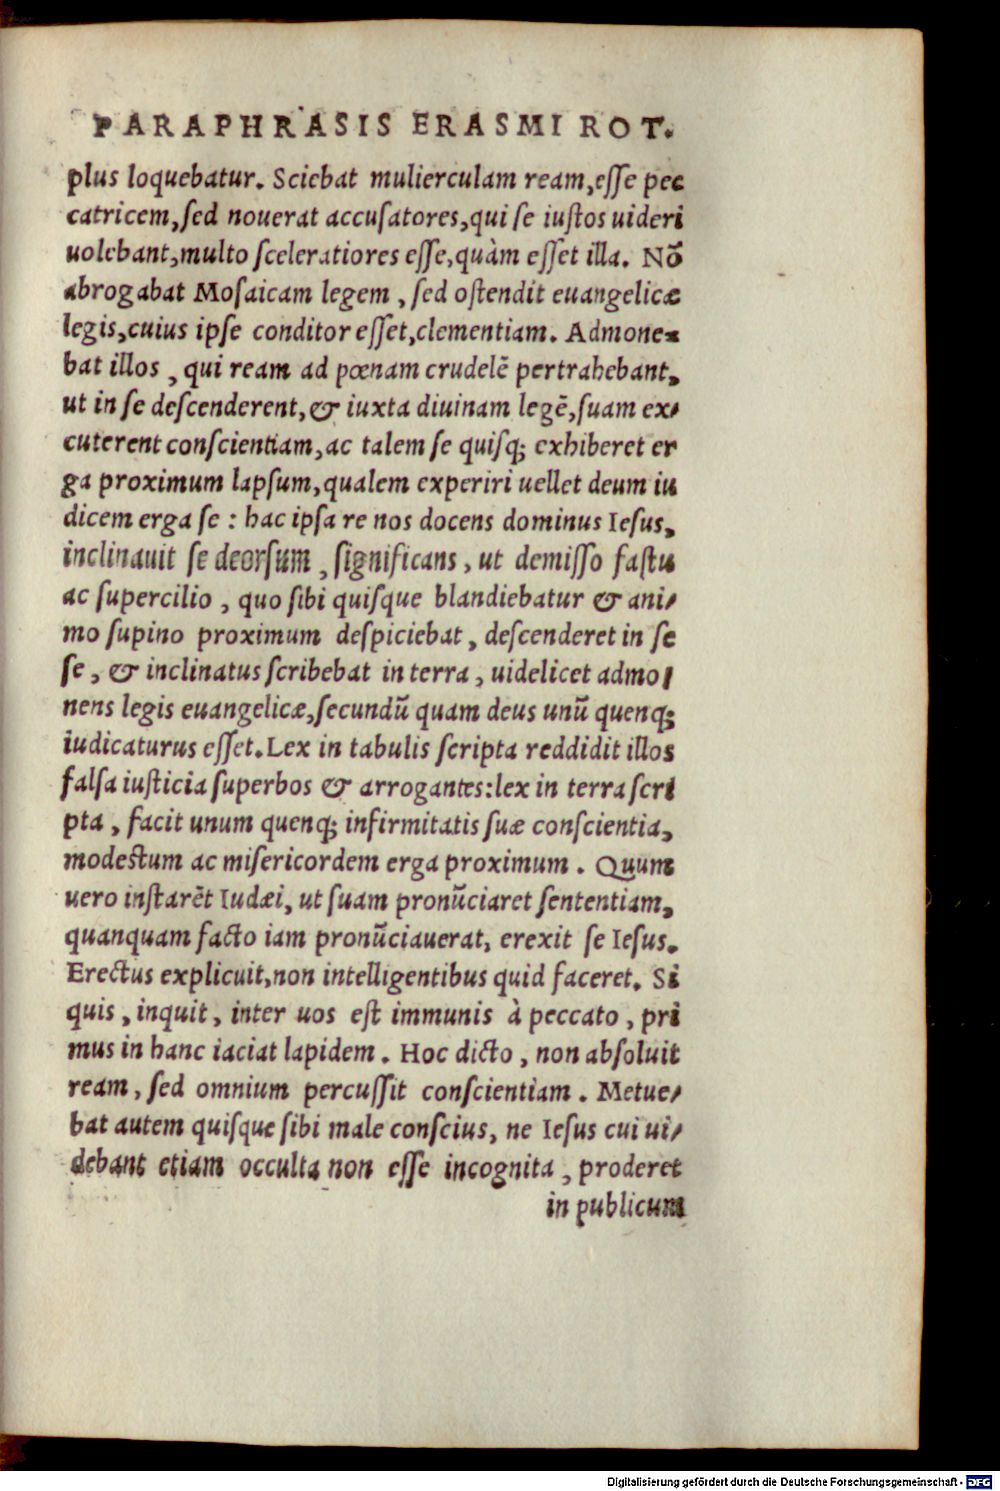 PARAPHRASIS ERASMI ROT.
plus loquebatur. Sciebat mulierculam ream,esse pec
catricem,sed nouerat accusatores,qui se iustos uideri
uolebant,multo sceleratiores esse,quàm esset illa. Nõ
abrogabat Mosaicam legem , sed ostendit euangelicæ
legis,cuius ipse conditor esset,clementiam. Admone-
bat illos , qui ream ad pœnam crudelẽ pertrahebant,
ut in se descenderent,& iuxta diuinam legẽ,suam ex-
cuterent conscientiam,ac talem se quisq; exhiberet er
ga proximum lapsum,qualem experiri uellet deum iu
dicem erga se : hac ipsa re nos docens dominus Iesus,
inclinauit se deorsum , significans , ut demisso fastu
ac supercilio , quo sibi quisque blandiebatur & ani-
mo supino proximum despiciebat , descenderet in se
se , & inclinatus scribebat in terra , uidelicet admo-
nens legis euangelicæ,secundũ quam deus unũ quenq;
iudicaturus esset.Lex in tabulis scripta reddidit illos
falsa iusticia superbos & arrogantes:lex in terra scri
pta , facit unum quenq; infirmitatis suæ conscientia,
modestum ac misericordem erga proximum . Quum
uero instarẽt Iudæi, ut suam pronũciaret sententiam,
quanquam facto iam pronũciauerat, erexit se Iesus.
Erectus explicuit,non intelligentibus quid faceret. Si
quis , inquit , inter uos est immunis à peccato , pri
mus in hanc iaciat lapidem . Hoc dicto , non absoluit
ream , sed omnium percussit conscientiam . Metue-
bat autem quisque sibi male conscius, ne Iesus cui ui-
debant etiam occulta non esse incognita , proderet
in publicum
Digitalisierung gefördert durch die Deutsche Forschungsgemeinschaft - DFG